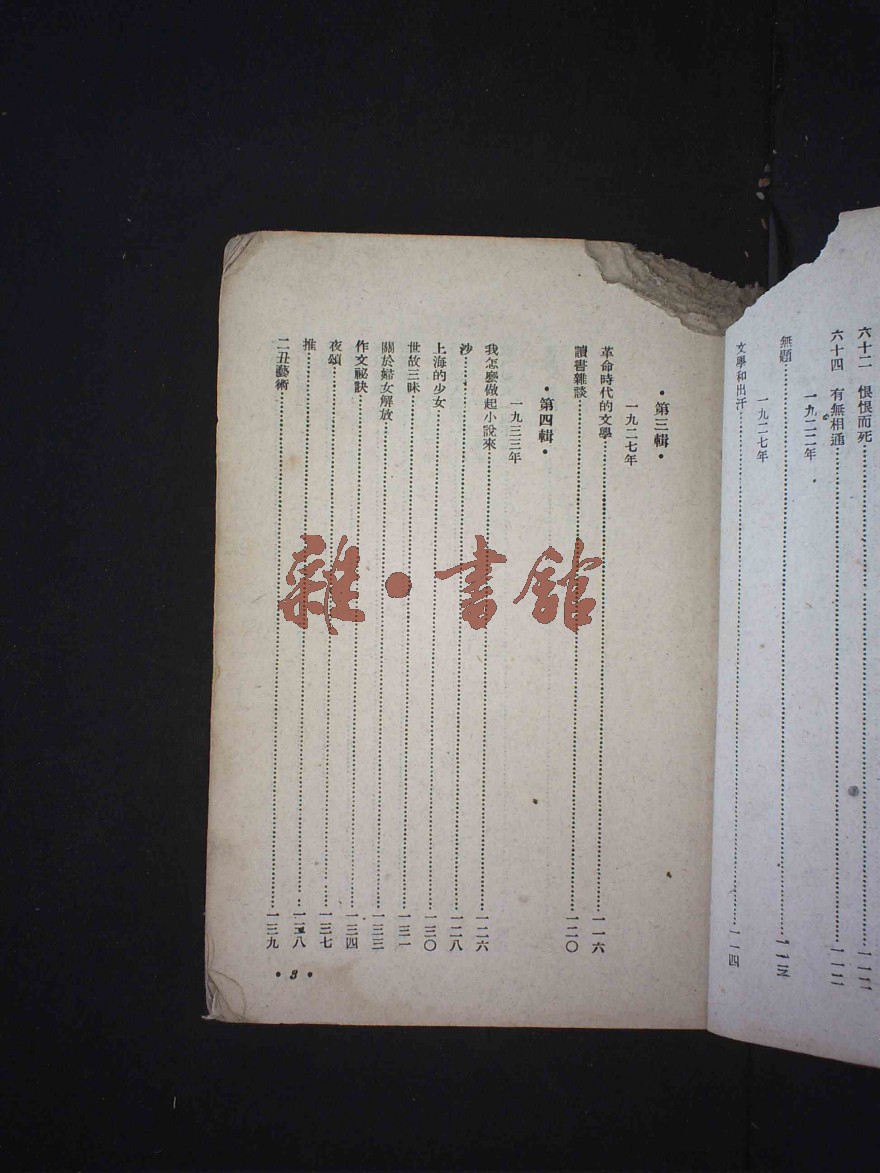 六十二　恨恨而死……一一二
六十四　有無相通……一一二
一九二二年
無題……一一三
一九二七年
文學和出汗……一一四
•第三輯•
一九二七年
革命時代的文學……一一六
讀書雜談……一二〇
•第四輯•
一九三三年
我怎麼做起小說來……一二六
沙……一二八
上海的少女……一三〇
世故三昧……一三一
關於婦女解放……一三三
作文祕訣……一三四
夜頌……一三七
推……一三八
二丑藝術……一三九
•3•
雜•書館